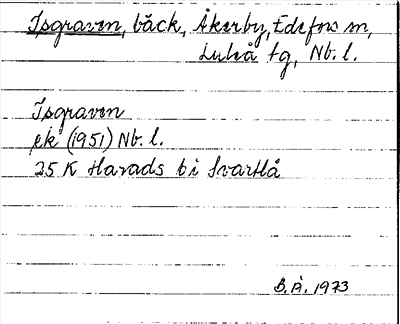 Isgraven, bäck, Åkerby, Edefors sn,
Luleå tg, Nb. l.
Isgraven
ek (1951) Nb. l.
25 K Harads bi Svartlå
B.Å. 1973